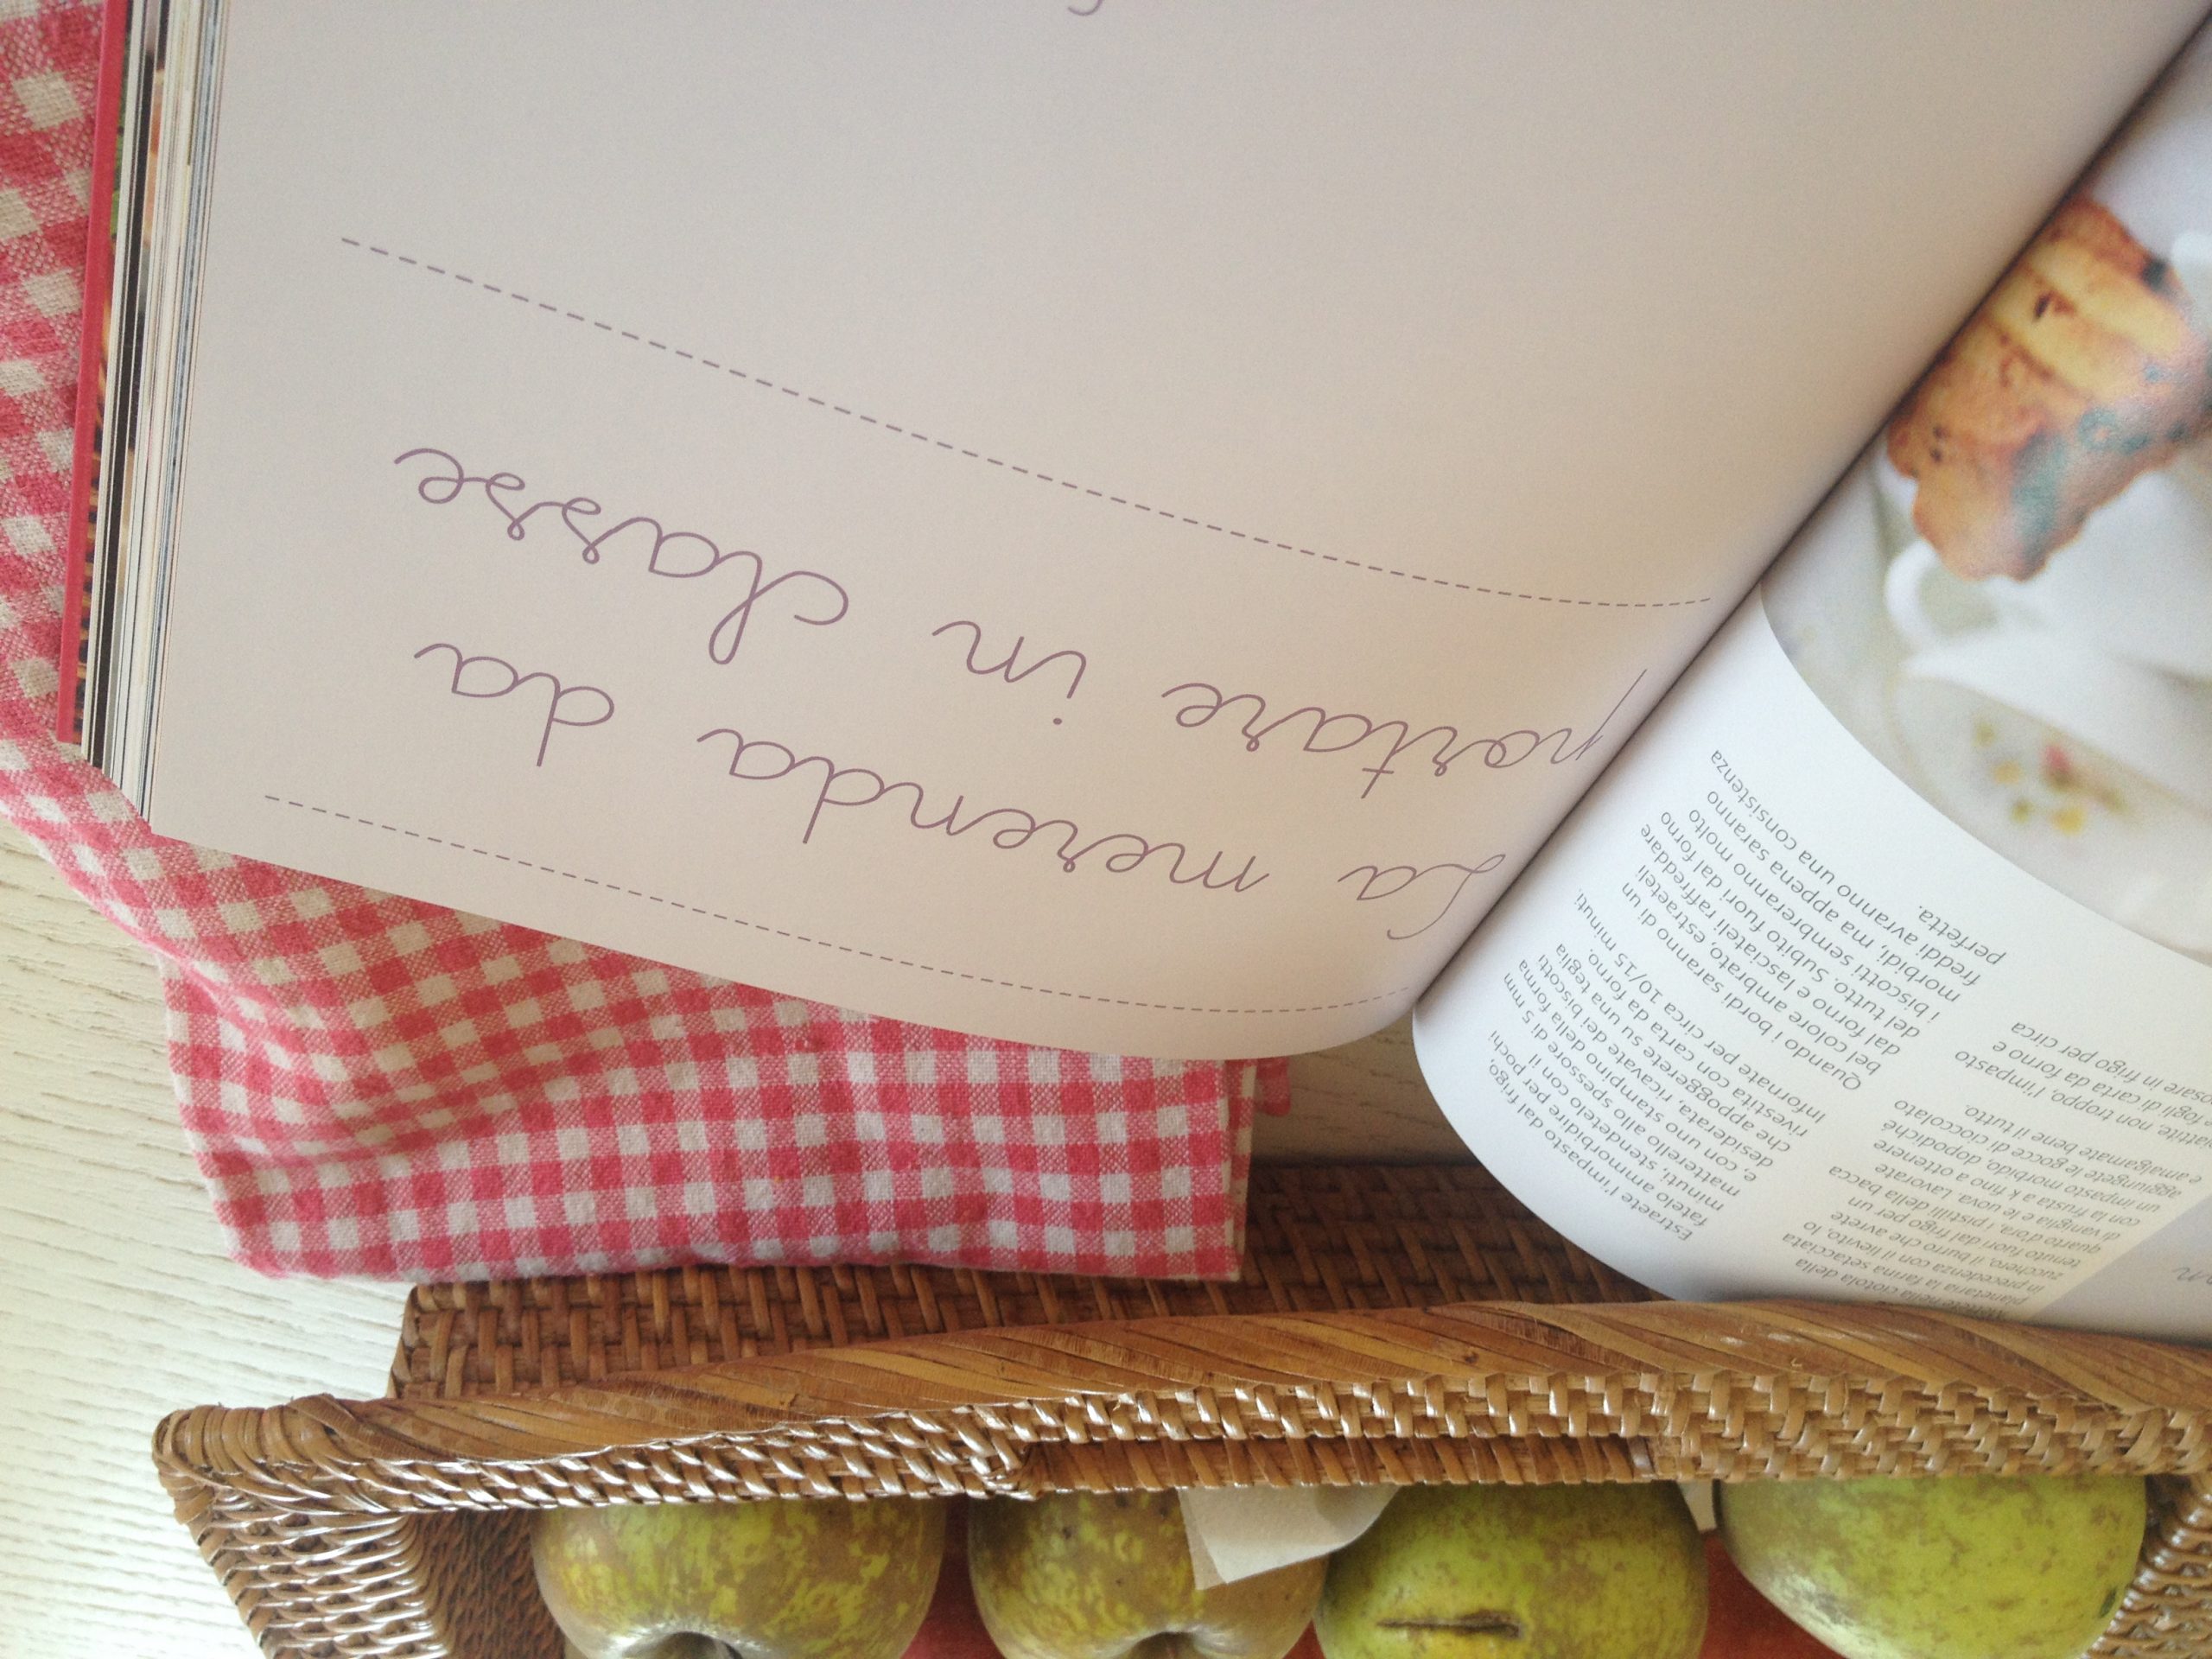 nella ciotola della
planetaria la farina setacciata
in precedenza con il lievito, lo
zucchero, il burro che avrete
tenuto fuori dal frigo per un
quarto d'ora, i pistilli della bacca
di vaniglia e le uova. Lavorate
con la frusta a k fino a ottenere
un impasto morbido, dopodiché
aggiungete le gocce di cioccolato
e amalgamate bene il tutto.
non troppo, l'impasto
fogli di carta da forno e
in frigo per circa
Estraete l'impasto dal frigo,
fatelo ammorbidire per pochi
minuti, stendetelo con il
matterello allo spessore di 5 mm
e, con uno stampino della forma
desiderata, ricavate dei biscotti
che appoggerete su una teglia
rivestita con carta da forno.
Infornate per circa 10/15 minuti.
Quando i bordi saranno di un
bel colore ambrato, estraeteli
dal forno e lasciateli raffreddare
del tutto. Subito fuori dal forno
i biscotti sembreranno molto
morbidi, ma appena saranno
freddi avranno una consistenza
perfetta.
La merenda da
portare in classe